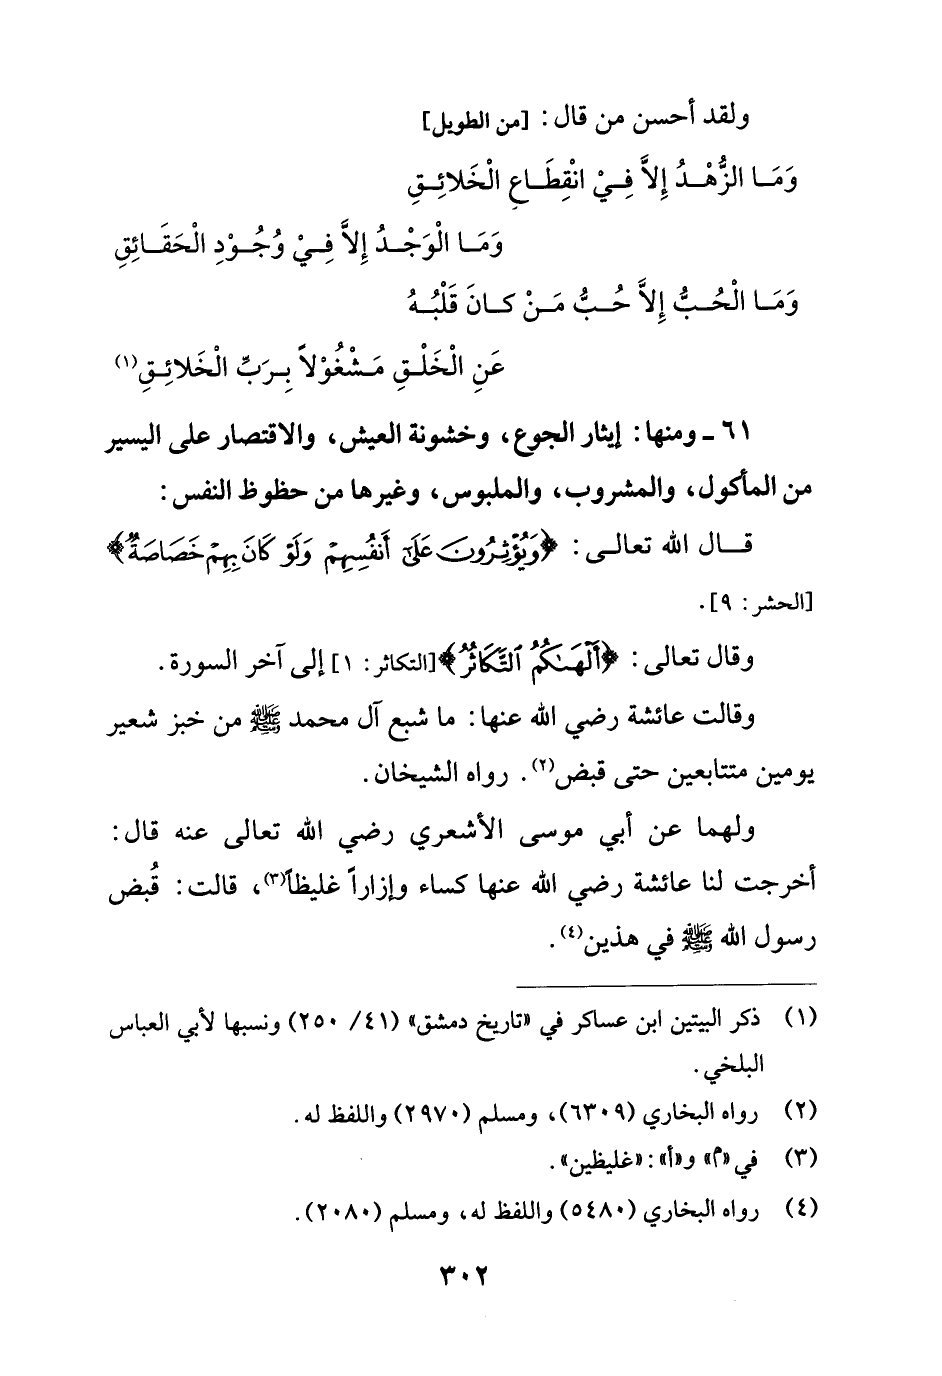 ولقد أحسن من قال: [من الطويل]
وَمَـا الزُّهْـدُ إِلاَّ فِـيْ انْقِطَـاعِ الْخَلائِـقِ
وَمَـا الْوَجْـدُ إِلاَّ فِـيْ وُجُـوْدِ الْحَقَـائِقِ
وَمَـا الْحُـبُّ إِلاَّ حُـبُّ مَـنْ كـانَ قَلْبُـهُ
عَنِ الْخَلْـقِ مَـشْغُوْلاً بِـرَبِّ الْخَلائِـقِ(١)
٦١ ـ ومنها: إيثار الجوع، وخشونة العيش، والاقتصار على اليسير
من المأكول، والمشروب، والملبوس، وغيرها من حظوظ النفس:
قـــال الله تعالـى: ﴿وَيُؤْثِرُونَ عَلَىٰٓ أَنفُسِهِمْ وَلَوْ كَانَ بِهِمْ خَصَاصَةٌ﴾
[الحشر: ٩].
وقال تعالى: ﴿أَلْهَىٰكُمُ ٱلتَّكَاثُرُ﴾[التكاثر: ١] إلى آخر السورة.
وقالت عائشة رضي الله عنها: ما شبع آل محمد ﷺ من خبز شعير
يومين متتابعين حتى قبض(٢). رواه الشيخان.
ولهما عن أبي موسى الأشعري رضي الله تعالى عنه قال:
أخرجت لنا عائشة رضي الله عنها كساء وإزاراً غليظاً(٣)، قالت: قُبض
رسول الله ﷺ في هذين(٤).
(١) ذكر البيتين ابن عساكر في «تاريخ دمشق» (٤١/ ٢٥٠) ونسبها لأبي العباس
البلخي.
(٢) رواه البخاري (٦٣٠٩)، ومسلم (٢٩٧٠) واللفظ له.
(٣) في «م» و«أ»: «غليظين».
(٤) رواه البخاري (٥٤٨٠) واللفظ له، ومسلم (٢٠٨٠).
٣٠٢